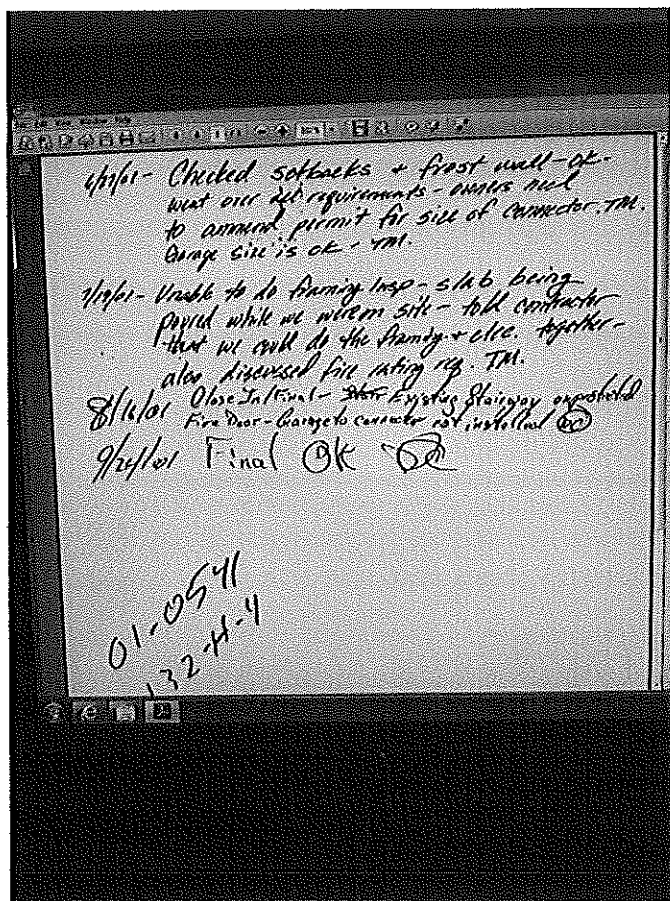 Checked setbacks + frost wall - OK.
went over all requirements - owners need
to ammend permit for size of connector. TM.
Garage size is ok - TM.
7/19/01 - Unable to do framing insp - slab being
poured while we were on site - told contractor
that we could do the framing + elec. together -
also discussed fire rating req. TM.
8/16/01 Close In/Final - Existing Stairway unprotected
Fire Door - Garage to connector not installed
9/26/01 Final OK
01-0541
132-H-4